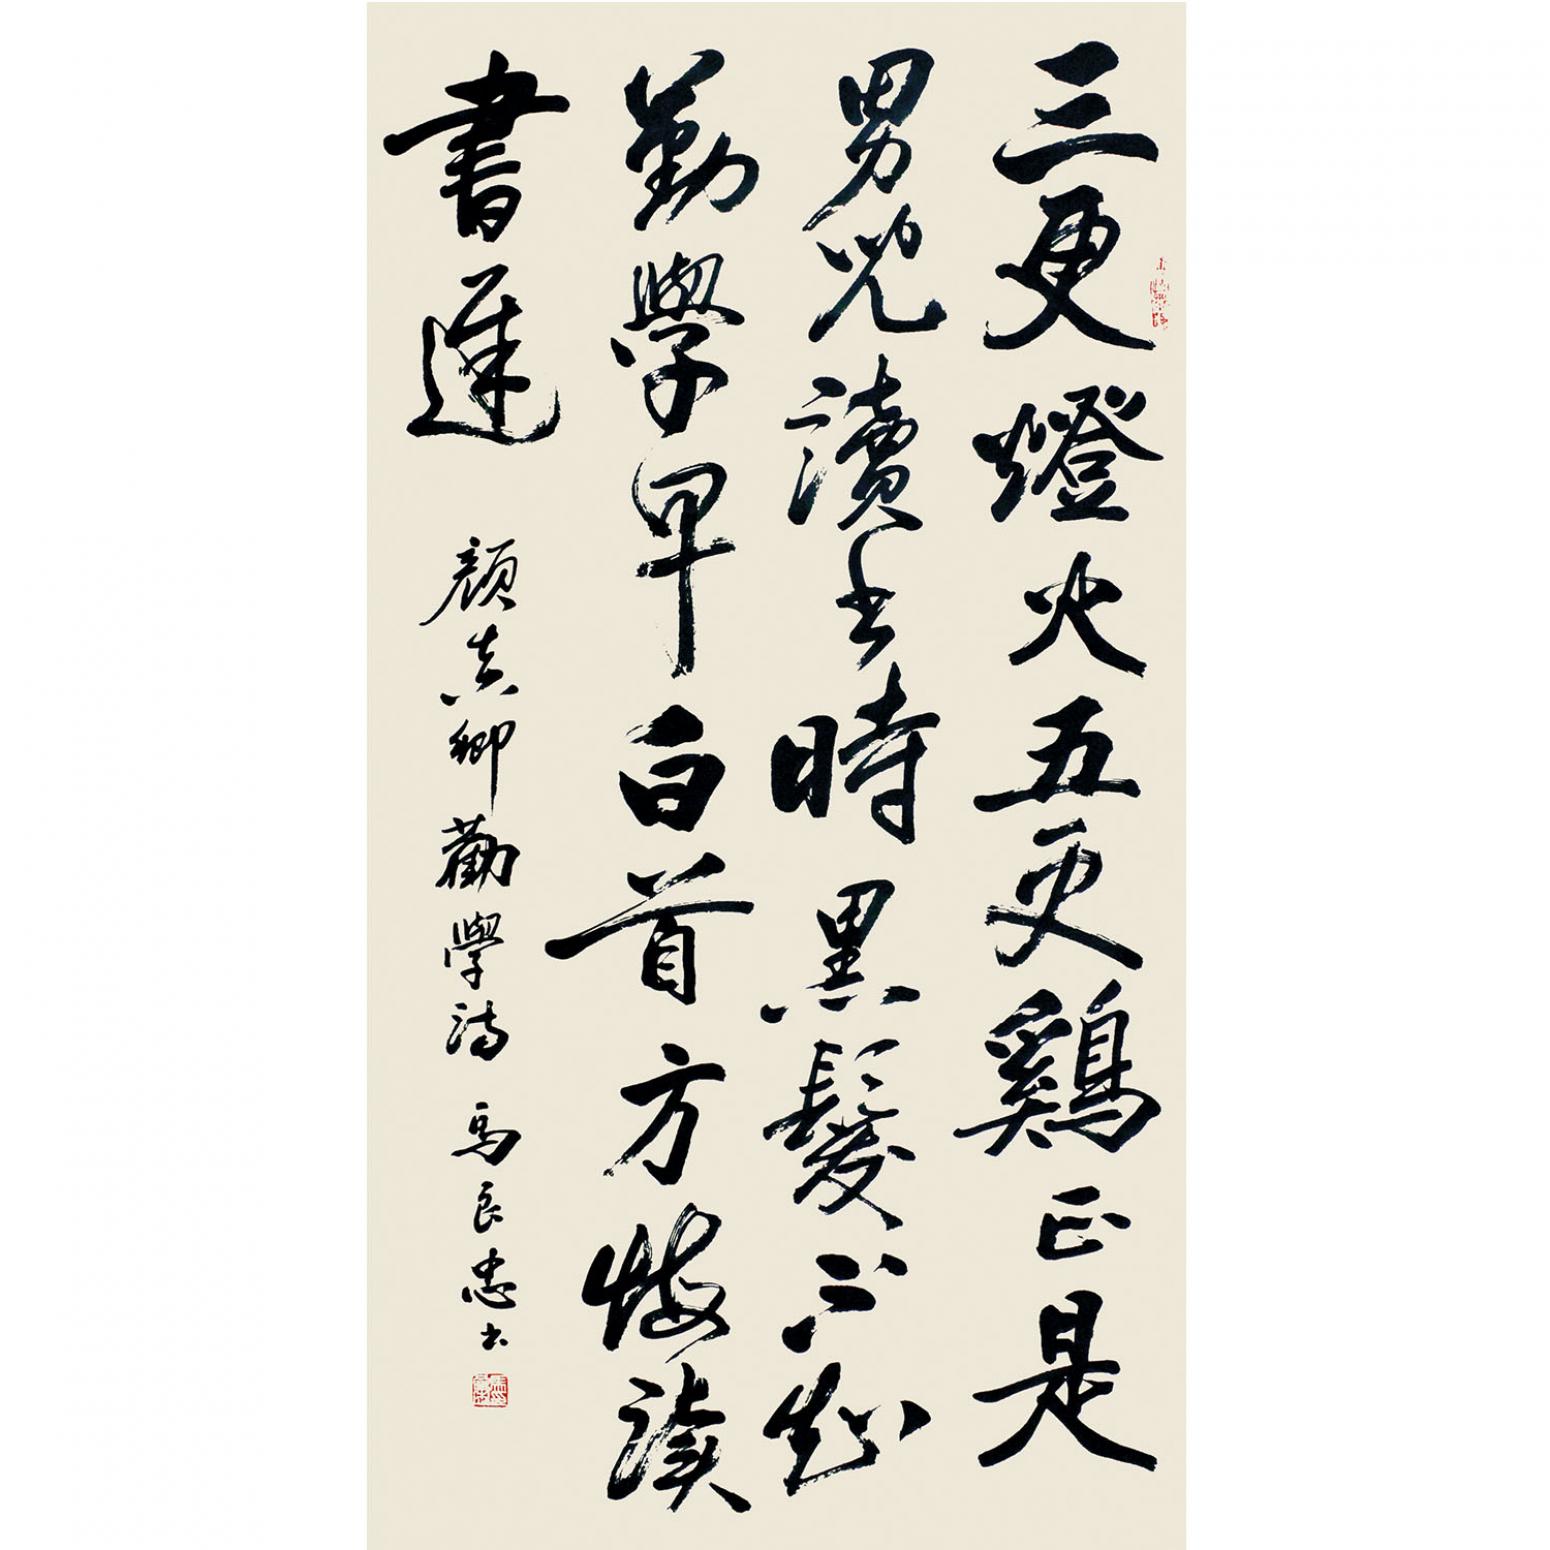 三更燈火五更鷄正是
男兒讀书時黑髮不知
勤學早白首方悔讀
書遲
顏真卿勸學詩 馬良忠书